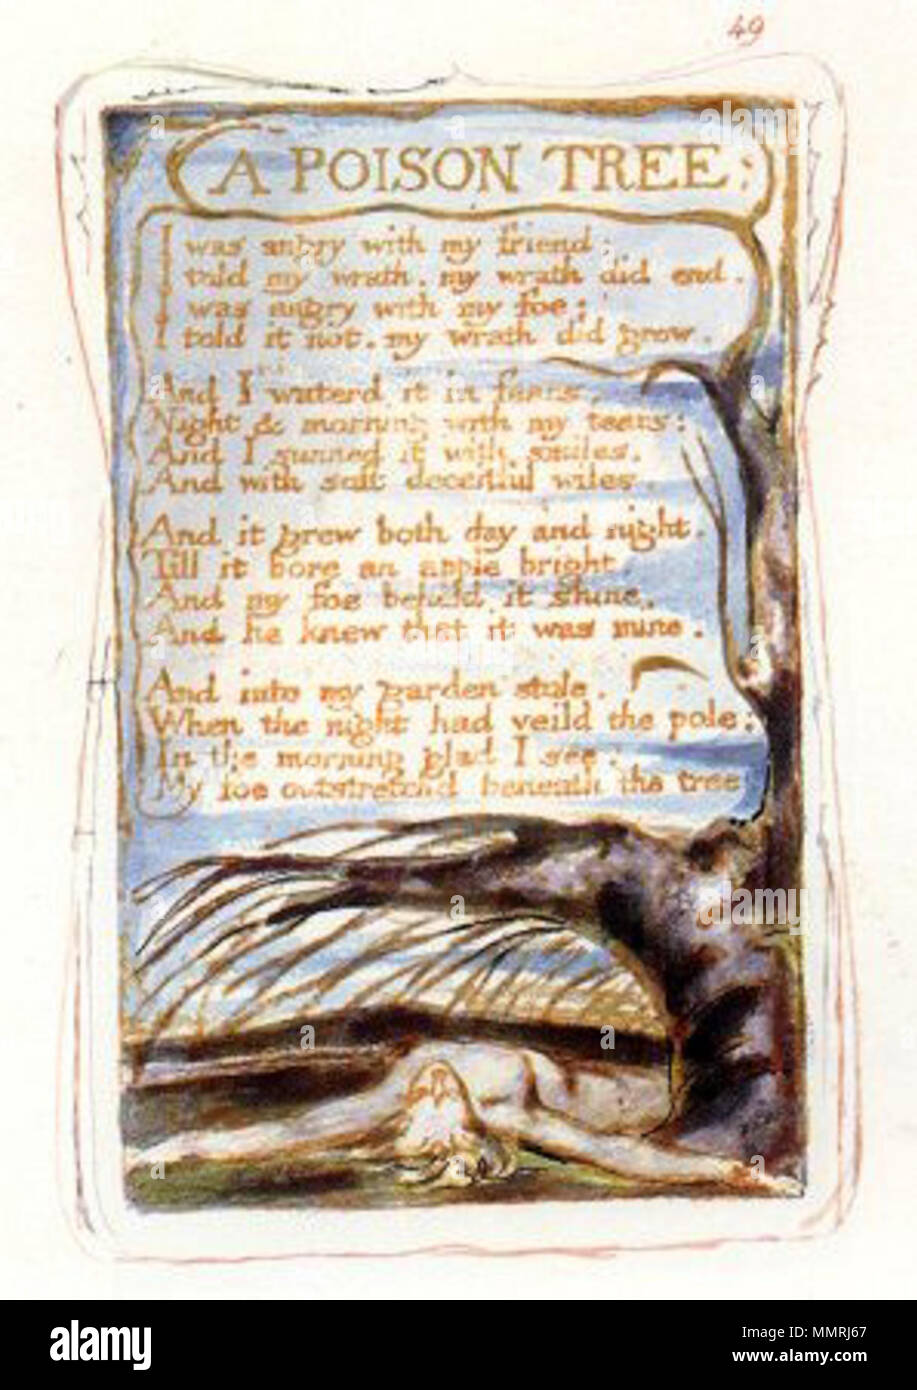 49
A POISON TREE:
I was angry with my friend:
I told my wrath, my wrath did end.
I was angry with my foe:
I told it not, my wrath did grow.
And I waterd it in fears,
Night & morning with my tears:
And I sunned it with smiles,
And with soft deceitful wiles.
And it grew both day and night.
Till it bore an apple bright.
And my foe beheld it shine,
And he knew that it was mine.
And into my garden stole.
When the night had veild the pole;
In the morning glad I see;
My foe outstretchd beneath the tree
alamy
alamy
alamy
a
a
a
a
a
alamy
Image ID: MMRJ67
www.alamy.com